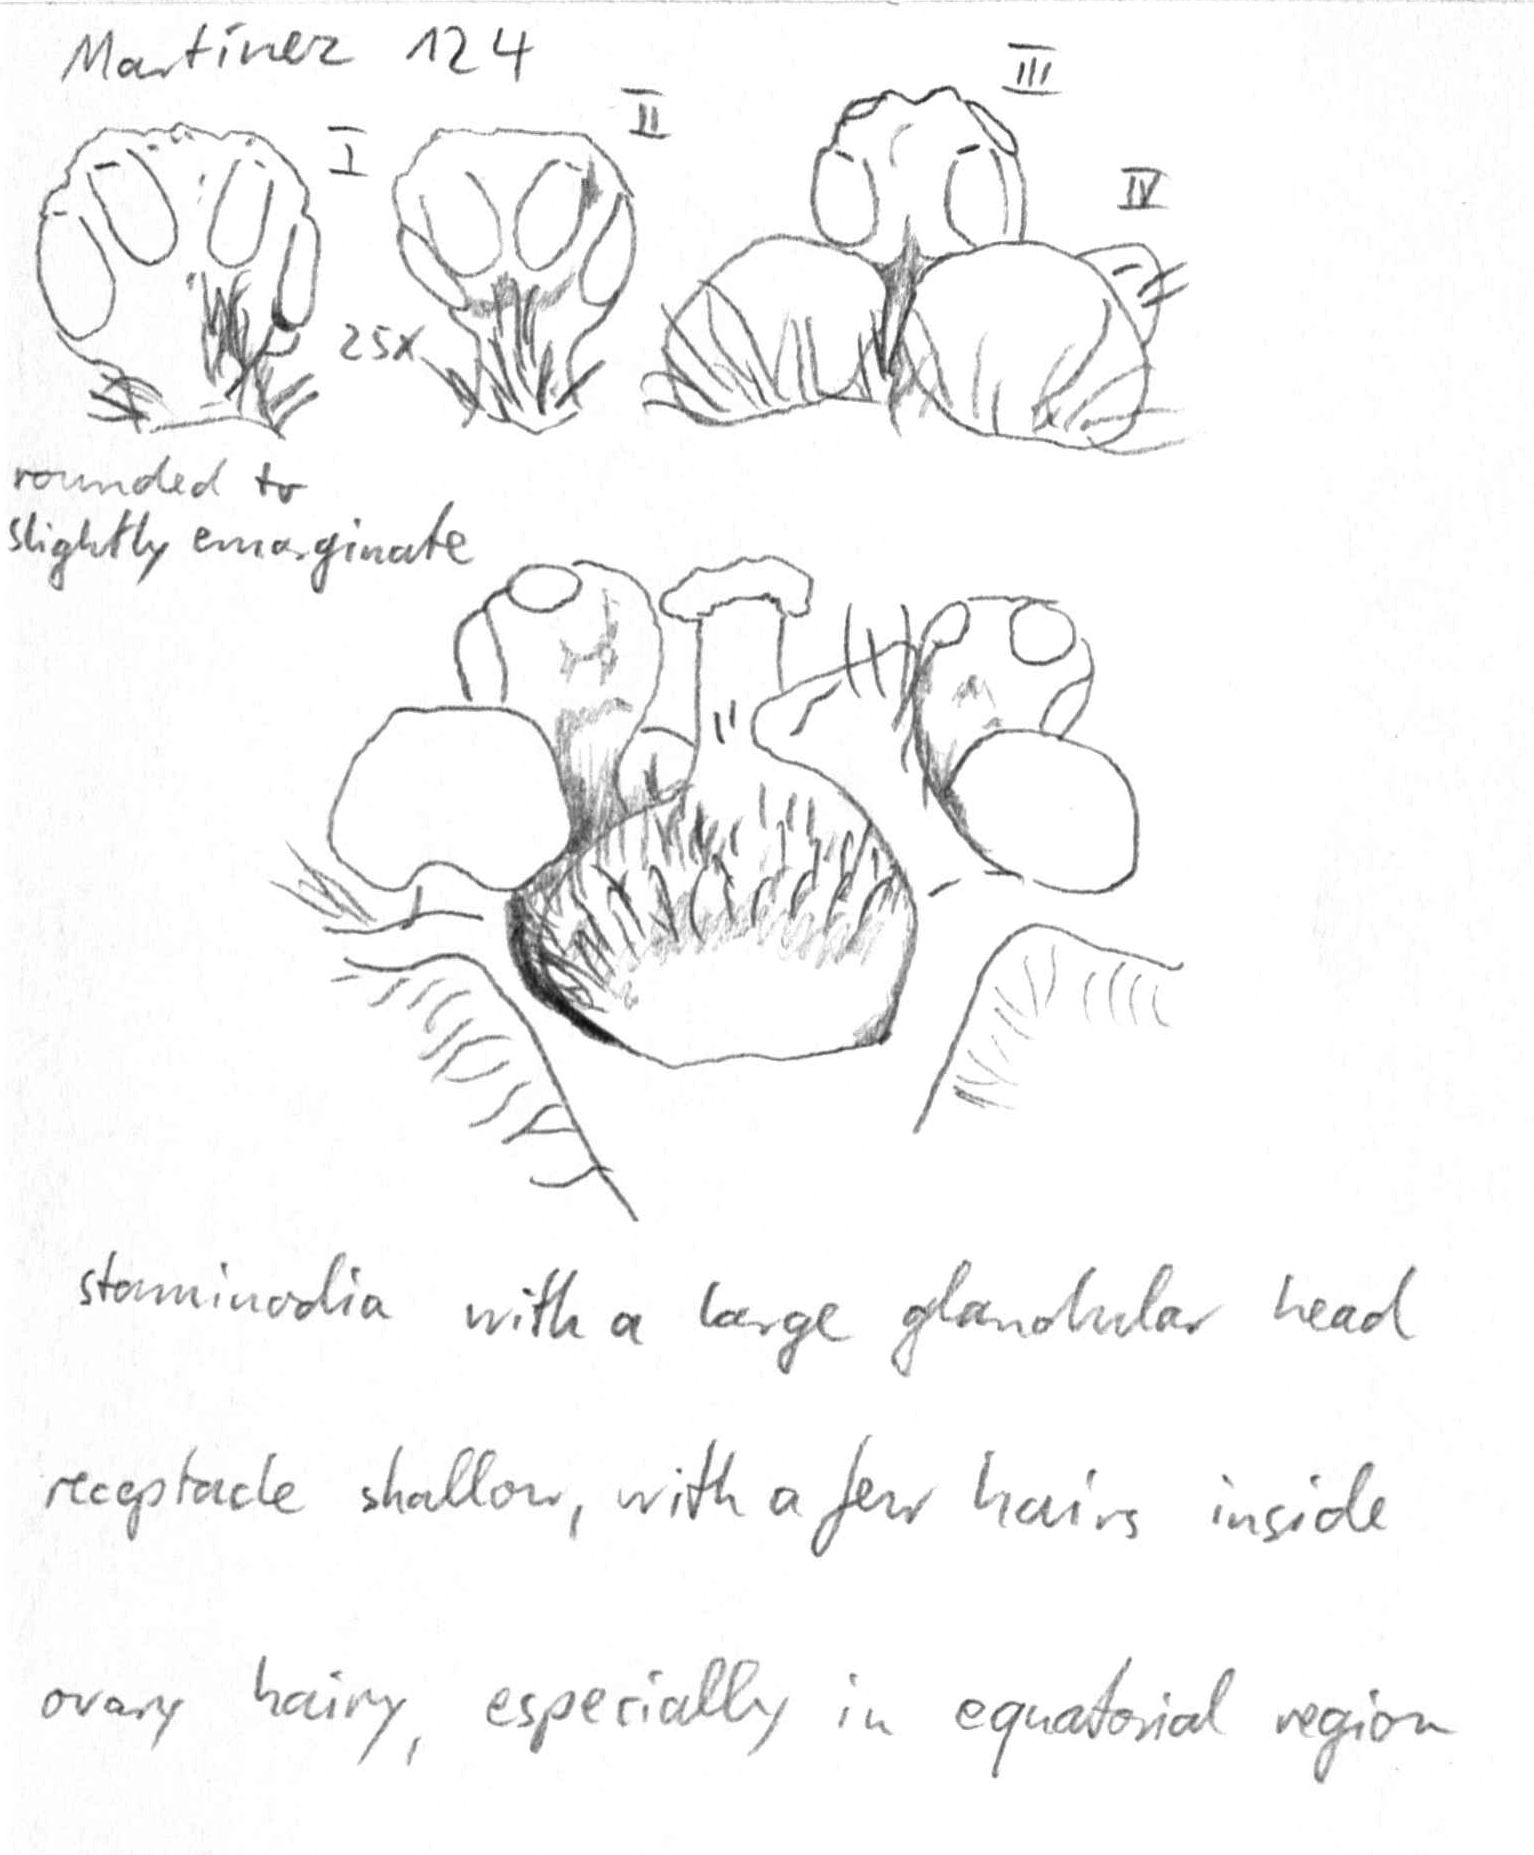 Martínez 124
I
II
III
IV
25x
rounded to
slightly emarginate
staminodia with a large glandular head
receptacle shallow, with a few hairs inside
ovary hairy, especially in equatorial region